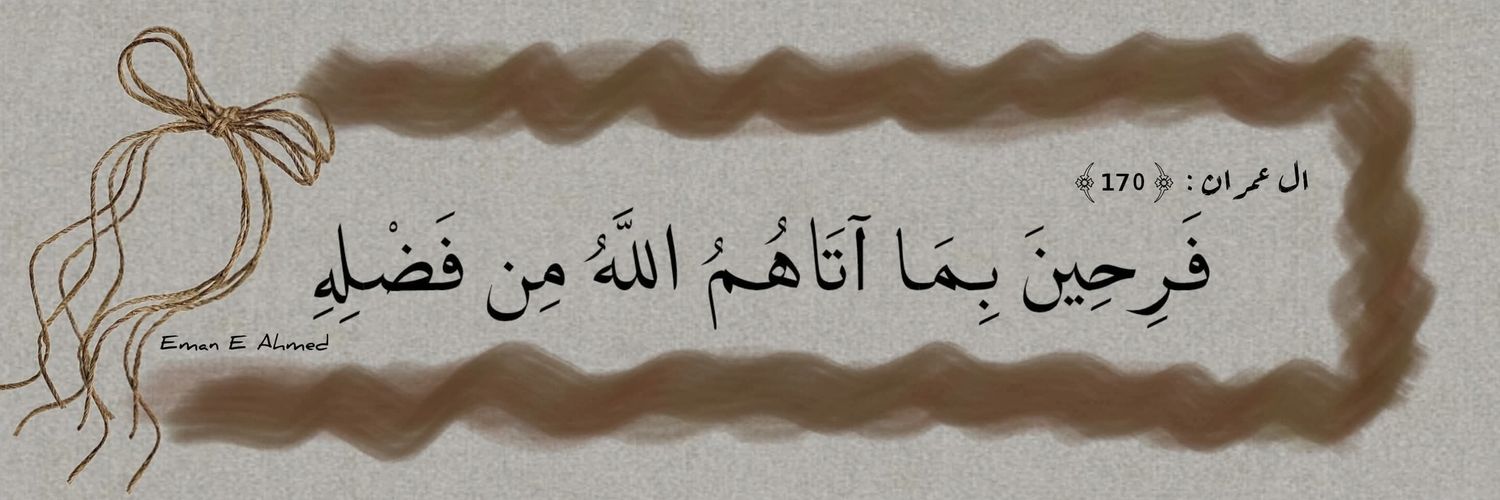 ال عمران : ﴿ 170 ﴾
فَرِحِينَ بِمَا آتَاهُمُ اللَّهُ مِن فَضْلِهِ
Eman E Ahmed